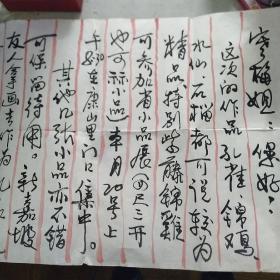 宝梅姐：您好！
这次的作品孔雀、锦鸡、
水仙、石榴都可说较为
精品特别紫藤锦雞
可参加省小品展(四尺三开
也可称小品)本月20号上
午8:30在康山里门口集中。
其他几张小品亦不错
可保留待用。新嘉坡
友人拿画去作为礼